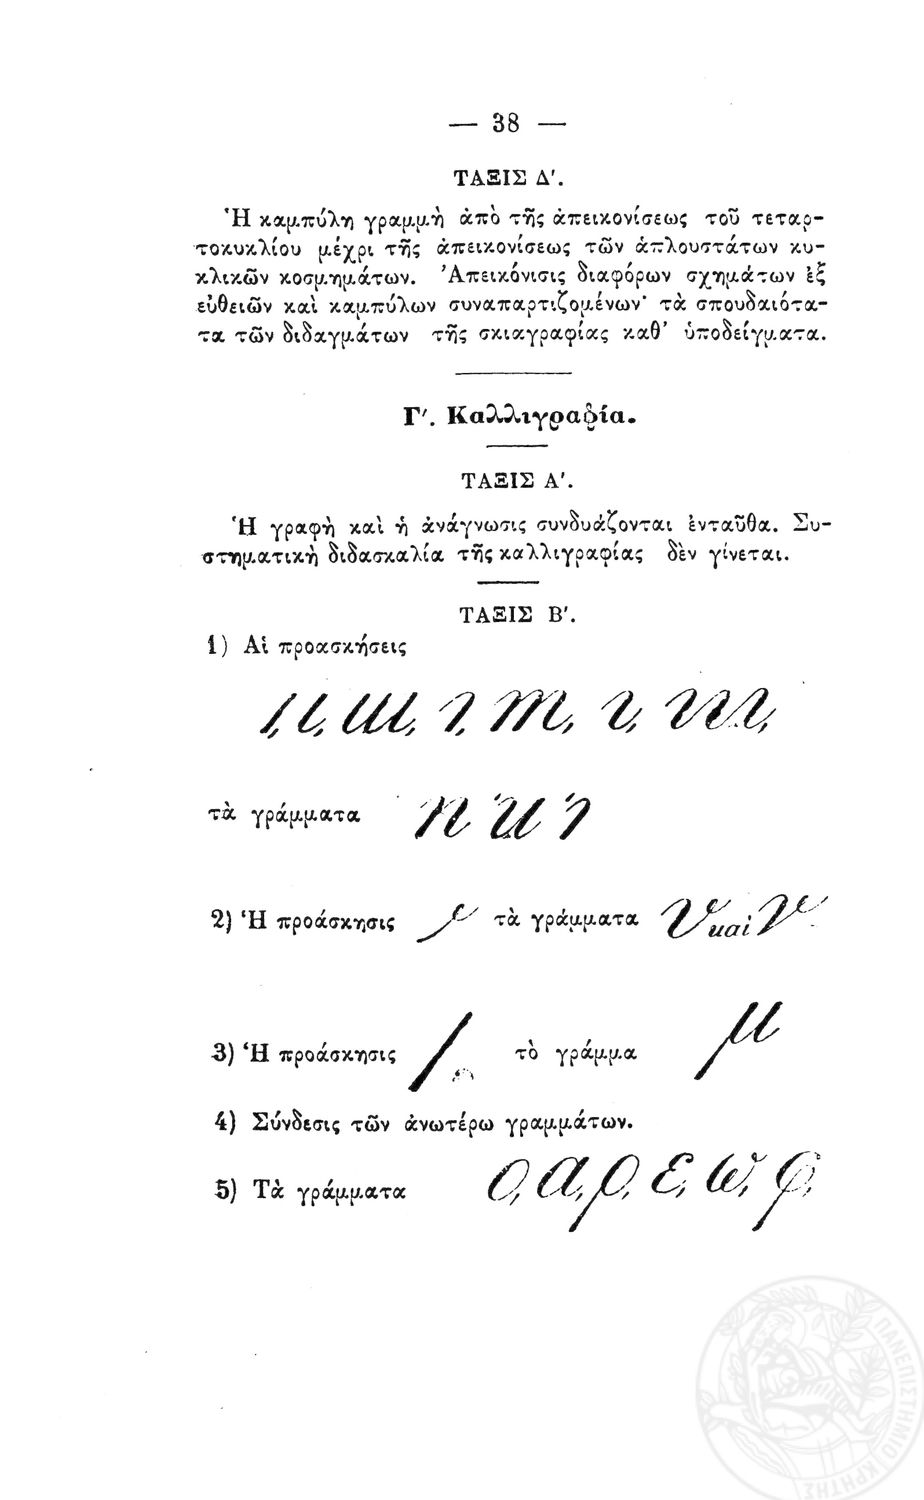 — 38 —
ΤΑΞΙΣ Δ'.
Ἡ καμπύλη γραμμὴ ἀπὸ τῆς ἀπεικονίσεως τοῦ τεταρ-
τοκυκλίου μέχρι τῆς ἀπεικονίσεως τῶν ἁπλουστάτων κυ-
κλικῶν κοσμημάτων. Ἀπεικόνισις διαφόρων σχημάτων ἐξ
εὐθειῶν καὶ καμπύλων συναπαρτιζομένων· τὰ σπουδαιότα-
τα τῶν διδαγμάτων τῆς σκιαγραφίας καθ' ὑποδείγματα.
Γ'. Καλλιγραφία.
ΤΑΞΙΣ Α'.
Ἡ γραφὴ καὶ ἡ ἀνάγνωσις συνδυάζονται ἐνταῦθα. Συ-
στηματικὴ διδασκαλία τῆς καλλιγραφίας δὲν γίνεται.
ΤΑΞΙΣ Β'.
1) Αἱ προασκήσεις
τὰ γράμματα
2) Ἡ προάσκησις τὰ γράμματα υ καὶ ν
3) Ἡ προάσκησις τὸ γράμμα μ
4) Σύνδεσις τῶν ἀνωτέρω γραμμάτων.
5) Τὰ γράμματα ο, α, ρ, ε, ω, φ,
ΠΑΝΕΠΙΣΤΗΜΙΟ ΚΡΗΤΗΣ